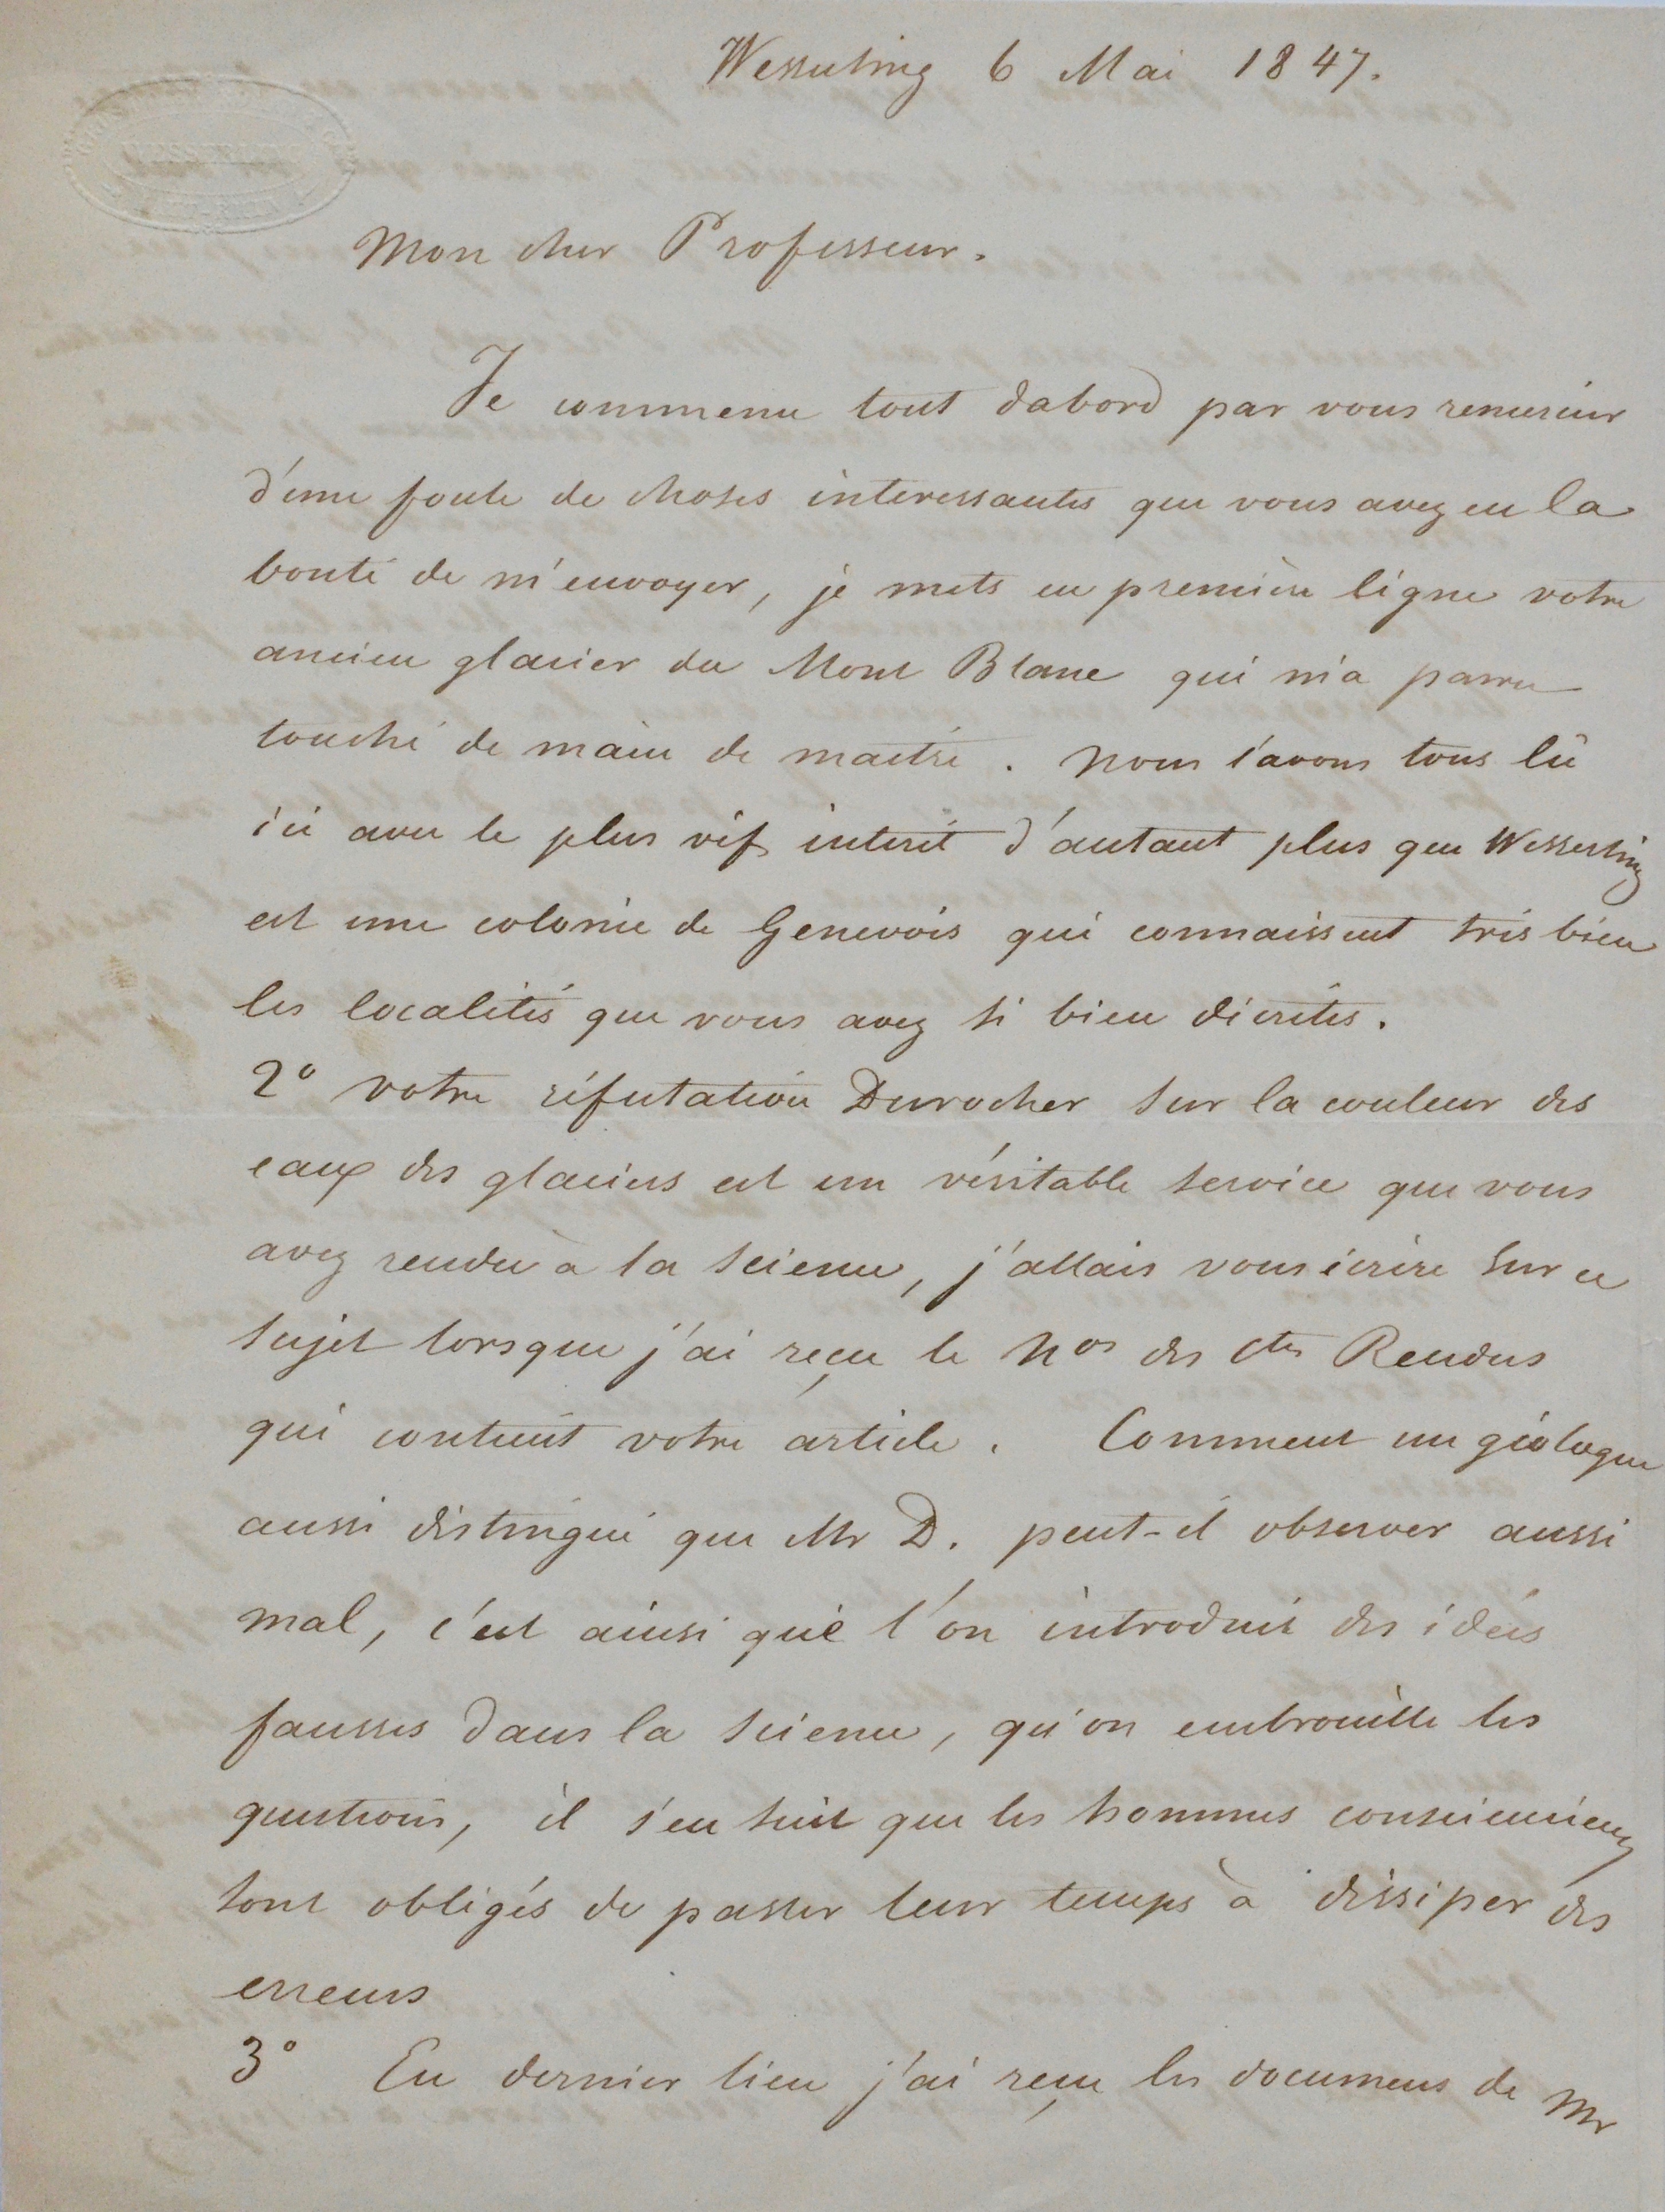 Wesserling 6 Mai 1847.
WESSERLING
Mon cher Professeur.
Je commence tout dabord par vous remercier
d'une foule de choses interessantes que vous avez eu la
bonté de m'envoyer, je mets en première ligne votre
ancien glacier du Mont Blanc qui m'a parru
touché de main de maitre. Nous l'avons tous lû
ici avec le plus vif interêt d'autant plus que Wesserling
est une colonie de Genevois qui connaissent très bien
les localités que vous avez si bien décrites.
2° votre réfutation Durocher sur la couleur des
eaux des glaciers est un véritable service que vous
avez rendu à la science, j'allais vous écrire sur ce
sujet lorsque j'ai reçu le Nos des Ctes Rendus
qui contient votre article. Comment un géologue
aussi distingué que Mr D. peut-il observer aussi
mal, c'est ainsi que l'on introduit des idées
fausses dans la science, qu'on embrouille les
questions, il s'en suit que les hommes consciencieux
sont obligés de passer leur temps à dissiper des
erreurs
3° En dernier lieu j'ai reçu les documens de Mr